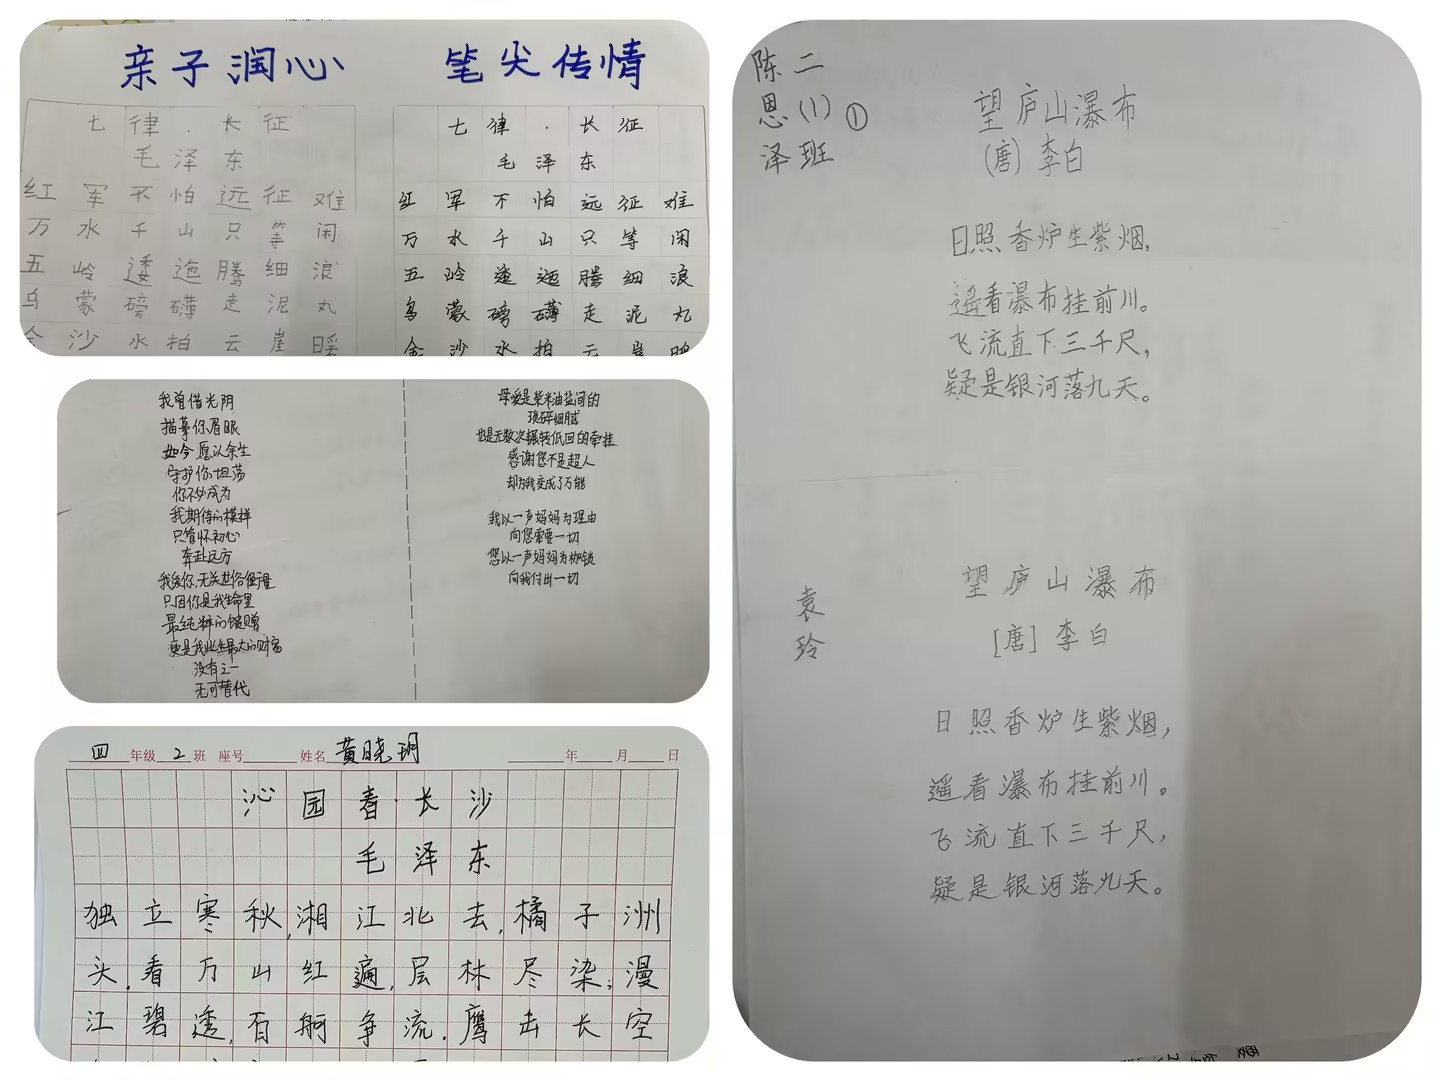 亲子润心 笔尖传情
七律·长征
毛泽东
红军不怕远征难
万水千山只等闲
五岭逶迤腾细浪
乌蒙磅礴走泥丸
金沙水拍云崖暖
七律·长征
毛泽东
红军不怕远征难
万水千山只等闲
五岭逶迤腾细浪
乌蒙磅礴走泥丸
金沙水拍云崖暖
我曾借光阴
描摹你眉眼
如今愿以余生
守护你坦荡
你不必成为
我期待的模样
只管怀初心
奔赴远方
我爱你,无关世俗衡量
只因你是我生命里
最纯粹的馈赠
更是我此生最大的财富
没有之一
无可替代
母爱是柴米油盐间的
琐碎细腻
也是无数次辗转低回的牵挂
感谢您不是超人
却为我变成了万能
我以一声妈妈为理由
向您索要一切
您以一声妈妈为枷锁
向我付出一切
四年级2班 座号 姓名黄晓玥 年 月 日
沁园春·长沙
毛泽东
独立寒秋,湘江北去,橘子洲
头.看万山红遍,层林尽染;漫
江碧透,百舸争流.鹰击长空
陈恩泽
二(1)班
①
望庐山瀑布
(唐)李白
日照香炉生紫烟,
遥看瀑布挂前川。
飞流直下三千尺,
疑是银河落九天。
袁玲
望庐山瀑布
[唐]李白
日照香炉生紫烟,
遥看瀑布挂前川。
飞流直下三千尺,
疑是银河落九天。